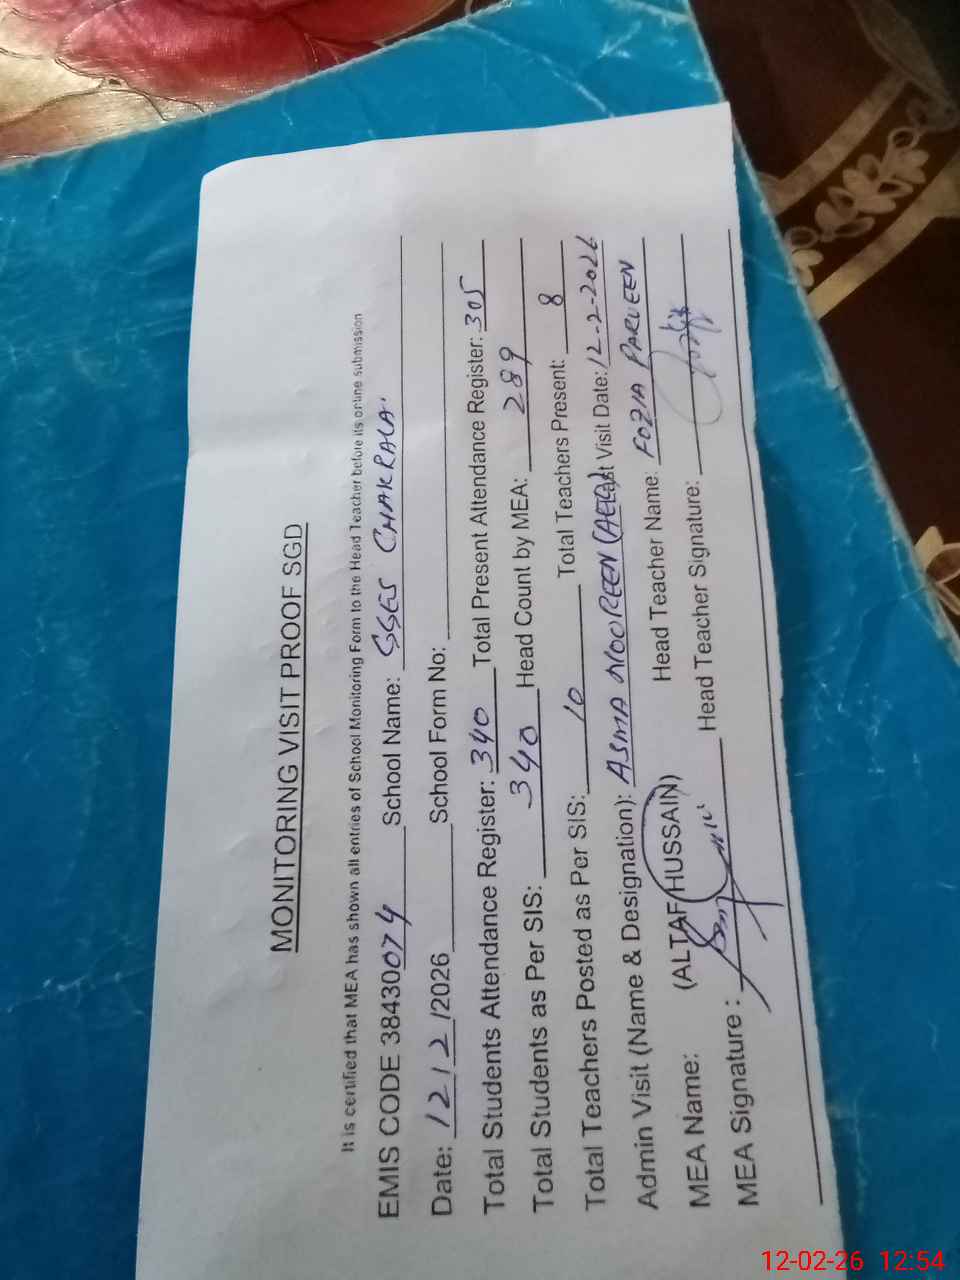 MONITORING VISIT PROOF SGD
It is certified that MEA has shown all entries of School Monitoring Form to the Head Teacher before its online submission
EMIS CODE 38430074 School Name: GGES CHAKRALA
Date: 12/2/2026 School Form No:
Total Students Attendance Register: 340 Total Present Attendance Register: 305
Total Students as Per SIS: 340 Head Count by MEA: 289
Total Teachers Posted as Per SIS: 10 Total Teachers Present: 8
Admin Visit (Name & Designation): ASMA NOOREEN (AEO) Last Visit Date: 12-2-2026
MEA Name: (ALTAF HUSSAIN) Head Teacher Name: FOZIA PARVEEN
MEA Signature: Head Teacher Signature:
12-02-26 12:54